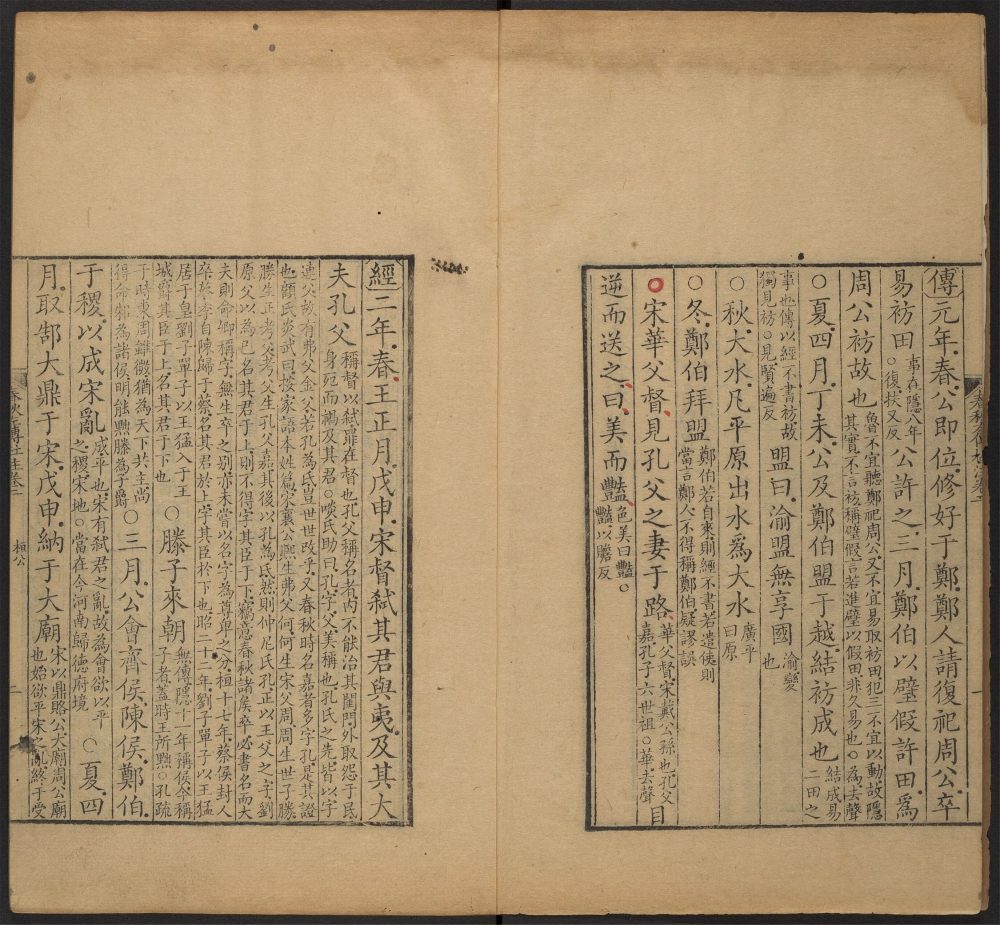 傳元年春公即位修好于鄭鄭人請復祀周公卒
易祊田
事在隱八年
○復扶又反
公許之三月鄭伯以璧假許田為
周公祊故也
魯不宜聽鄭祀周公又不宜易取祊田犯三不宜以動故隱
其實不言祊稱璧假言若進璧以假田非久易也○為去聲
○夏四月丁未公及鄭伯盟于越結祊成也
結成易
二田之
事也傳以經不書祊故
獨見祊○見賢遍反
盟曰渝盟無享國
渝變
也
○秋大水凡平原出水為大水
廣平
曰原
○冬鄭伯拜盟
鄭伯若自來則經不書若遣使則
當言鄭人不得稱鄭伯疑謬誤
○宋華父督見孔父之妻于路
華父督宋戴公孫也孔父
嘉孔子六世祖○華去聲
目
逆而送之曰美而豔
色美曰豔○
豔以贍反
經二年春王正月戊申宋督弒其君與夷及其大
夫孔父
稱督以弒罪在督也孔父稱名者內不能治其閨門外取怨于民
身死而禍及其君○啖氏助曰孔字父美稱也孔氏之先皆以字
連父故有弗父金父若孔為氏豈世世改乎又春秋時名嘉者多字孔是其證
也顧氏炎武曰按家語本姓篇宋襄公熙生弗父何何生宋父周周生世子勝
勝生正考父考父生孔父嘉其後以孔為氏然則仲尼氏孔正以王父之字劉
原父以為己名其君于上則不得字其臣于下竊意春秋諸侯卒必書名而大
夫則命卿稱字無生卒之別亦未嘗以名字為尊卑之分桓十七年蔡侯封人
卒蔡季自陳歸于蔡名其君於上字其臣於下也昭二十二年劉子單子以王猛
居于皇劉子單子以王猛入于王
城爵其臣于上名其君于下也
○滕子來朝
無傳隱十一年稱侯今稱
子者蓋時王所黜○孔疏
于時東周雖微猶為天下共主尚
得命邾為諸侯明能黜滕為子爵
○三月公會齊侯陳侯鄭伯
于稷以成宋亂
成平也宋有弒君之亂故為會欲以平
之稷宋地○當在今河南歸德府境
○夏四
月取郜大鼎于宋戊申納于大廟
宋以鼎賂公大廟周公廟
也始欲平宋之亂終于受
桓公
二